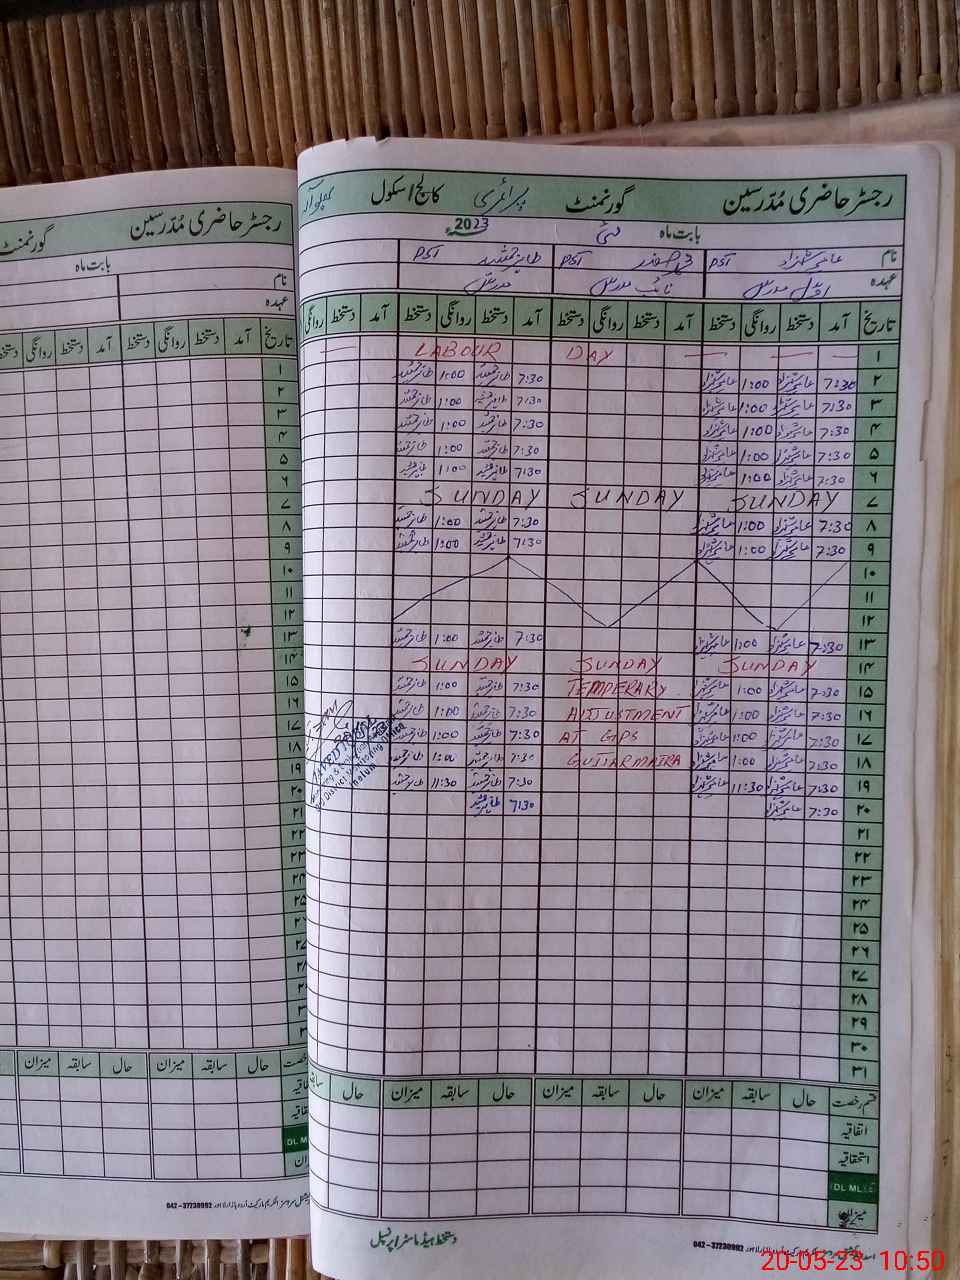 رجسٹر حاضری مُدّرسین گورنمنٹ پرائمری کالج/سکول
بابت ماہ مئی 2023
نام عامر شہزاد PST PST طاہر جمشید PST
عہدہ اوّل مدرس نائب مدرس مدرس
تاریخ آمد دستخط روانگی دستخط آمد دستخط روانگی دستخط آمد دستخط روانگی دستخط آمد دستخط روانگی
۱ LABOUR DAY
۲ 7:30 عامر شہزاد 1:00 عامر شہزاد 7:30 طاہر جمشید 1:00 طاہر جمشید
۳ 7:30 عامر شہزاد 1:00 عامر شہزاد 7:30 طاہر جمشید 1:00 طاہر جمشید
۴ 7:30 عامر شہزاد 1:00 عامر شہزاد 7:30 طاہر جمشید 1:00 طاہر جمشید
۵ 7:30 عامر شہزاد 1:00 عامر شہزاد 7:30 طاہر جمشید 1:00 طاہر جمشید
۶ 7:30 عامر شہزاد 1:00 عامر شہزاد 7:30 طاہر جمشید 1:00 طاہر جمشید
۷ SUNDAY SUNDAY SUNDAY
۸ 7:30 عامر شہزاد 1:00 عامر شہزاد 7:30 طاہر جمشید 1:00 طاہر جمشید
۹ 7:30 عامر شہزاد 1:00 عامر شہزاد 7:30 طاہر جمشید 1:00 طاہر جمشید
۱۰
۱۱
۱۲
۱۳ 7:30 عامر شہزاد 1:00 عامر شہزاد 7:30 طاہر جمشید 1:00 طاہر جمشید
۱۴ SUNDAY SUNDAY SUNDAY
۱۵ 7:30 عامر شہزاد 1:00 عامر شہزاد TEMPERARY 7:30 طاہر جمشید 1:00 طاہر جمشید
۱۶ 7:30 عامر شہزاد 1:00 عامر شہزاد ADJUSTMENT 7:30 طاہر جمشید 1:00 طاہر جمشید
۱۷ 7:30 عامر شہزاد 1:00 عامر شہزاد AT GPS 7:30 طاہر جمشید 1:00 طاہر جمشید
۱۸ 7:30 عامر شہزاد 1:00 عامر شہزاد GUJJARMATRA 7:30 طاہر جمشید 1:00 طاہر جمشید
۱۹ 7:30 عامر شہزاد 11:30 عامر شہزاد 7:30 طاہر جمشید 11:30 طاہر جمشید
۲۰ 7:30 عامر شہزاد 7:30 طاہر جمشید
۲۱
۲۲
۲۳
۲۴
۲۵
۲۶
۲۷
۲۸
۲۹
۳۰
۳۱
قسم رخصت حال سابقہ میزان حال سابقہ میزان حال سابقہ میزان حال
اتفاقیہ
استحقاقیہ
DL ML
میزان
دستخط ہیڈ ماسٹر/پرنسپل
042-37230992
رجسٹر حاضری مُدّرسین گورنمنٹ
بابت ماہ
نام
عہدہ
تاریخ آمد دستخط روانگی دستخط آمد دستخط روانگی دستخط
۱
۲
۳
۴
۵
۶
۷
۸
۹
۱۰
۱۱
۱۲
۱۳
۱۴
۱۵
۱۶
۱۷
۱۸
۱۹
۲۰
۲۱
۲۲
۲۳
حال سابقہ میزان حال سابقہ میزان
DL M
042-37230992
20-05-23 10:50